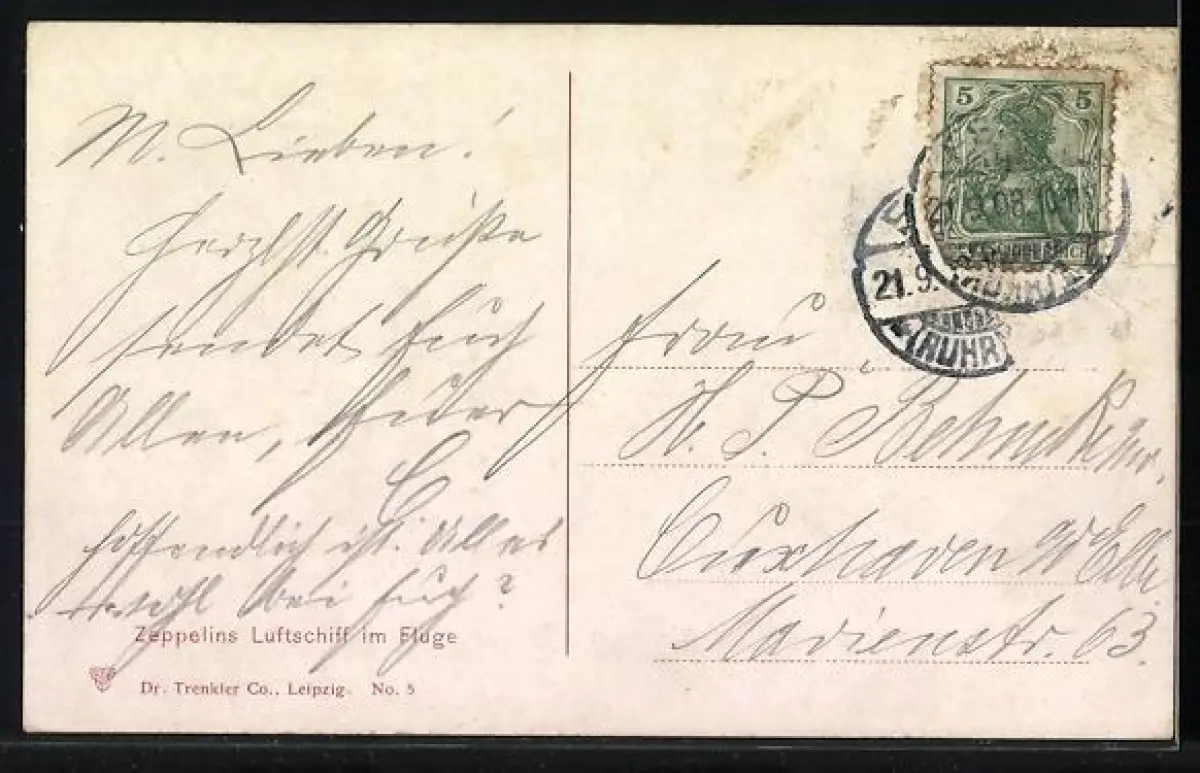 M. Lieben!
Herzlst. Grüße
sendet Euch
Allen, Euer
E
Hoffendlich ist Alles
wohl bei Euch?
Zeppelins Luftschiff im Fluge
Dr. Trenkler Co., Leipzig. No. 5
5 5
21.9.08
21.9.
(RUHR)
(RUHR)
Frau
P.
Cuxhaven a/Elbe
Marienstr. 63.